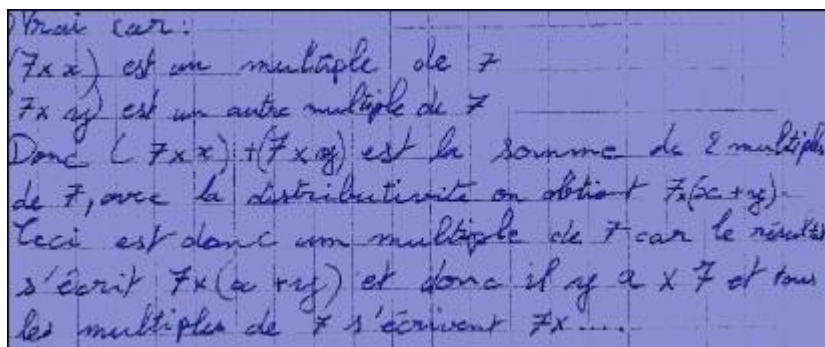 Vrai car:
(7 x x) est un multiple de 7
(7 x y) est un autre multiple de 7
Donc (7 x x) + (7 x y) est la somme de 2 multiples
de 7, avec la distributivité on obtient 7 x (x + y).
Ceci est donc un multiple de 7 car le résultat
s'écrit 7 x (x + y) et donc il y a x 7 et tous
les multiples de 7 s'écrivent 7 x .....